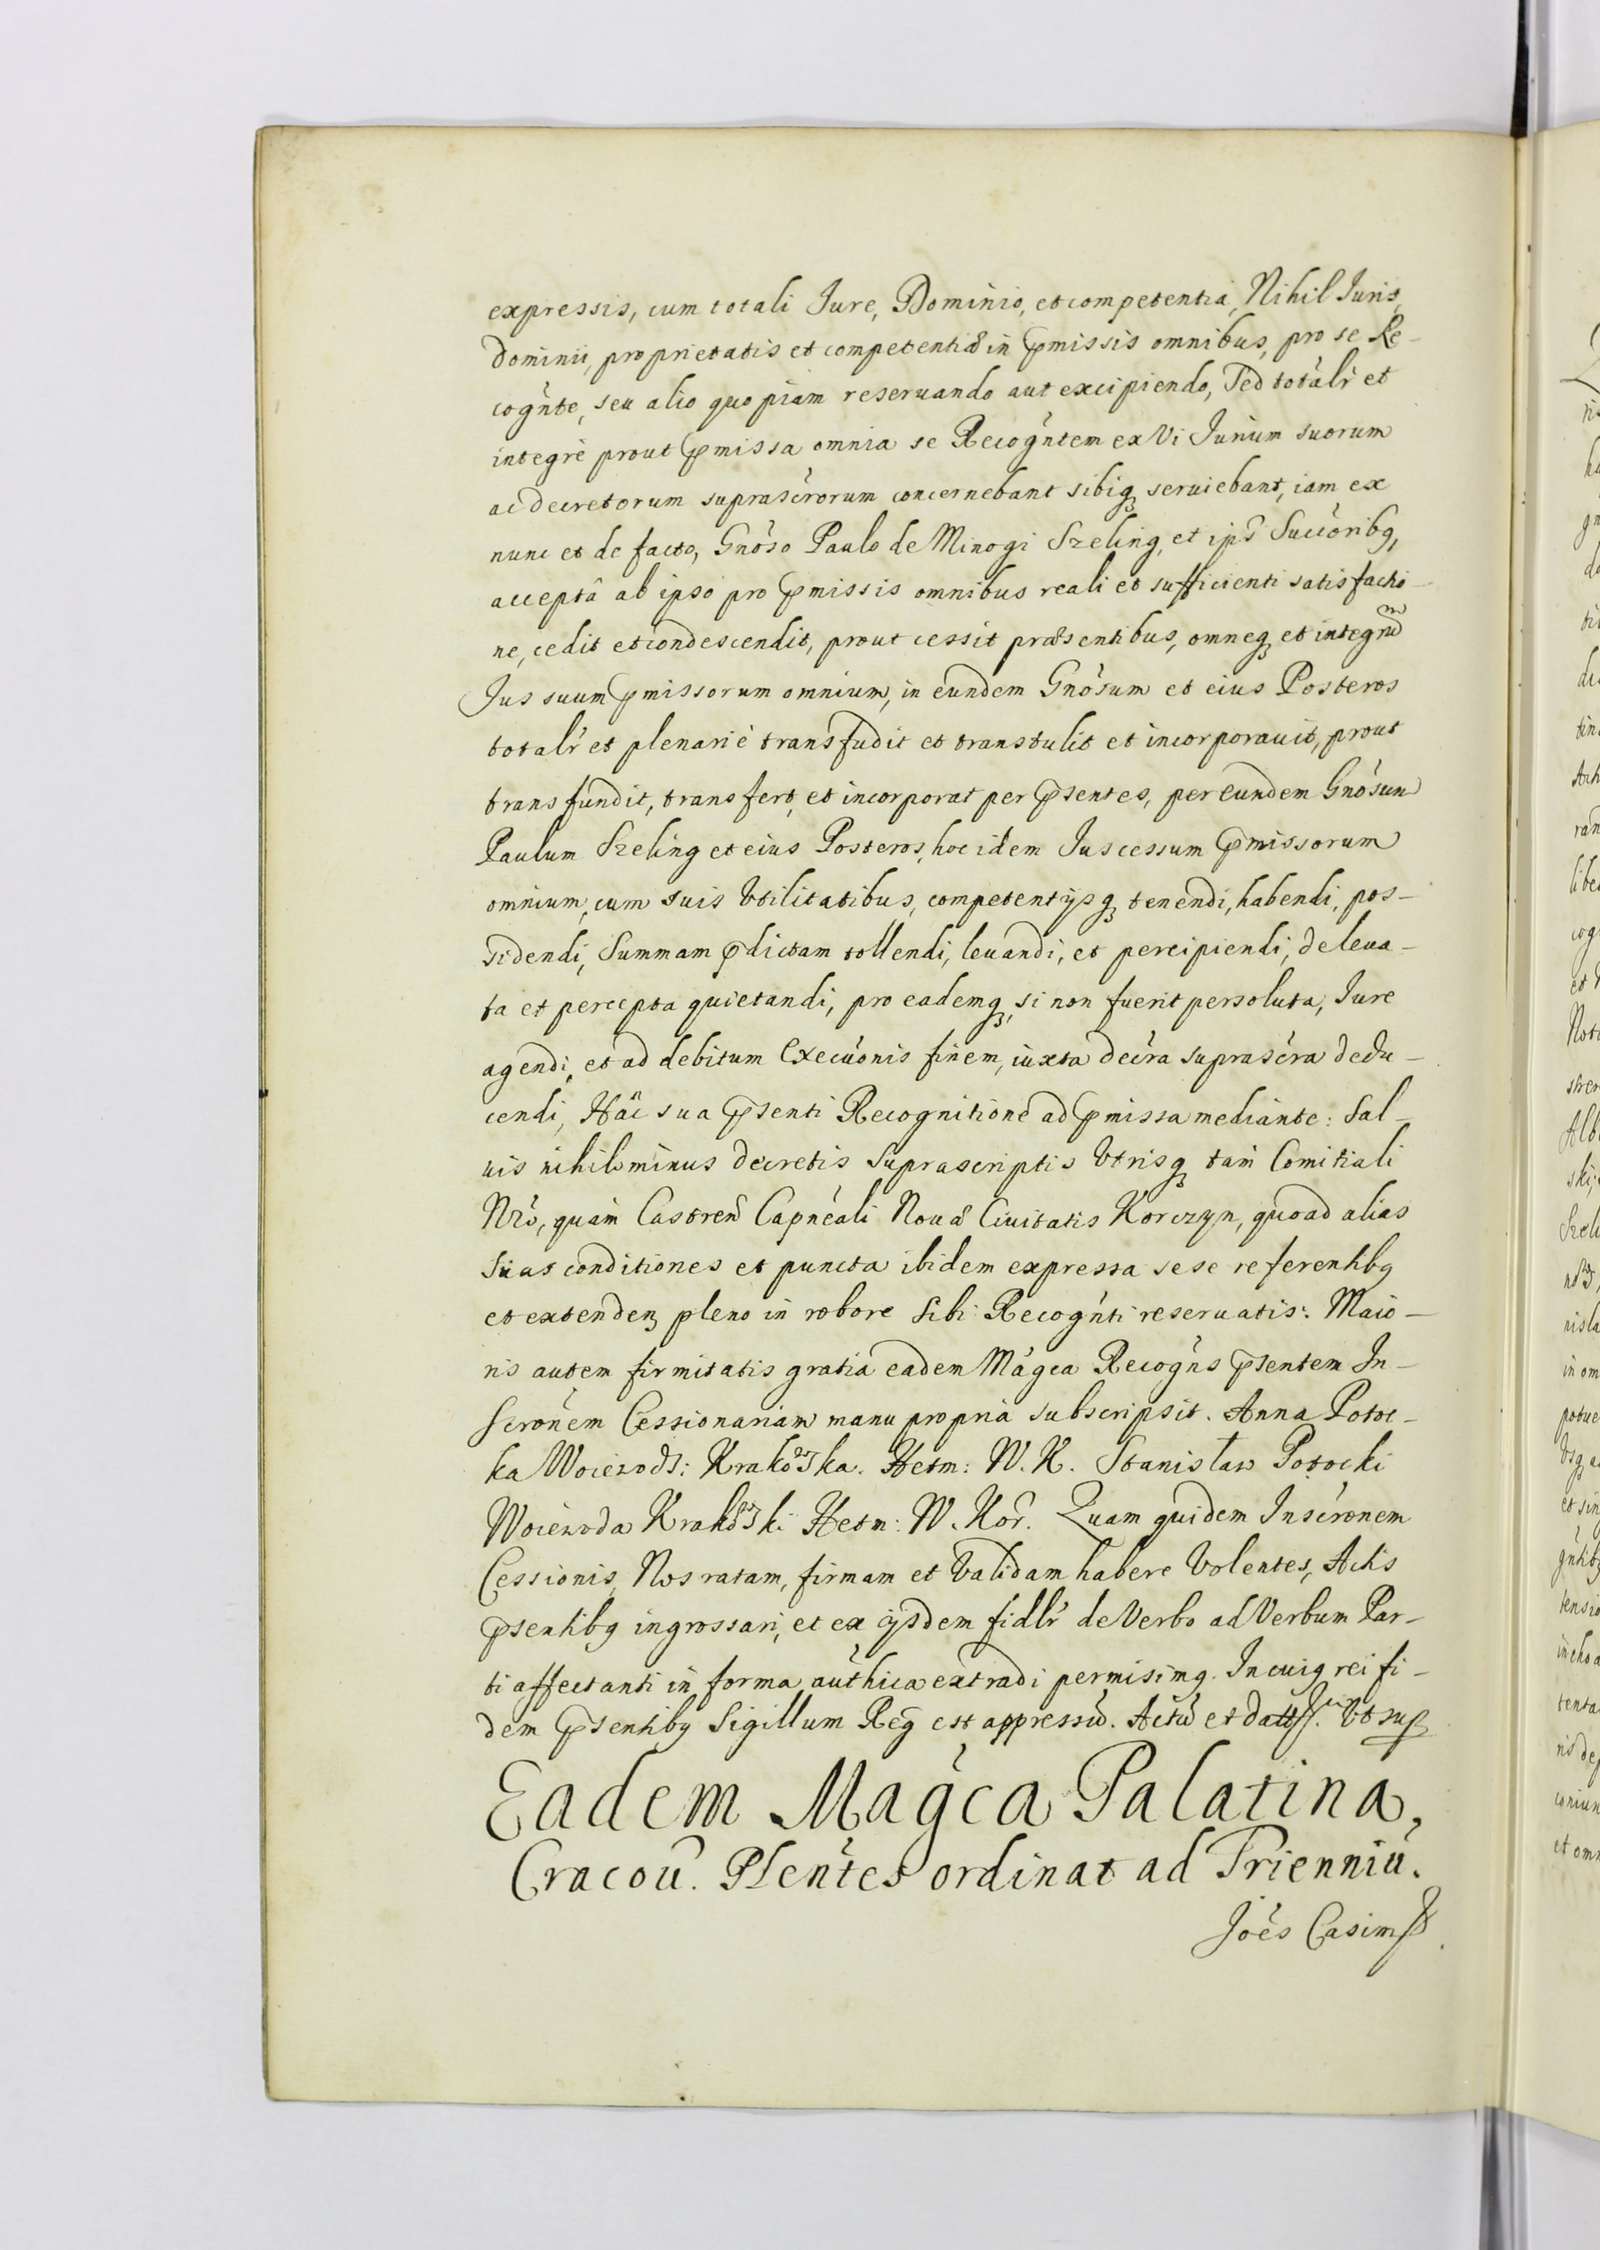 expressis, cum totali Jure, Dominio, et competentia, Nihil Juris,
Dominii, proprietatis et competentiæ in pmissis omnibus, pro se Re-
cognte, seu alio quopiam reseruando aut excipiendo, Sed totalr et
integrè prout pmissa omnia se Recogntem ex Vi Jurium suorum
ac decretorum suprascrorum concernebant sibiq seruiebant, iam ex
nunc et de facto, Gnoso Paulo de Minogi Szeling, et ips Succoribq,
acceptâ ab ipso pro pmissis omnibus reali et sufficienti satisfactio-
ne, cedit et condescendit, prout cessit præsentibus, omneq et integrũ
Jus suum pmissorum omnium, in eundem Gnosum et eius Posteros
totalr et plenariè transfudit et transtulit et incorporauit, prout
transfundit, transfert, et incorporat per psentes, per eundem Gnosum
Paulum Szeling et eius Posteros, hoc idem Jus cessum pmissorum
omnium, cum suis Vtilitatibus, competentijsq tenendi, habendi, pos-
sidendi, Summam pdictam tollendi, leuandi, et percipiendi, de leua-
ta et percepta quietandi, pro eademq, si non fuerit persoluta, Jure
agendi, et ad debitum Execuonis finem, iuxta decra suprascra dedu-
cendi, Hâc sua psenti Recognitione ad pmissa mediante: Sal-
uis nihilominus decretis suprascriptis Vtrisq tam Comitiali
Nro, quàm Castren Capneali Nouæ Ciuitatis Korczyn, quoad alias
suas conditiones et puncta ibidem expressa sese referentibq
et extenden pleno in robore sibi Recognti reseruatis: Maio-
ris autem firmitatis gratia eadem Magca Recogns psentem In-
scronem Cessionariam manu propria subscripsit. Anna Potoc-
ka Woiewodz: Krakowska. Hetm: W. K. Stanisław Potocki
Woiewoda Krakowski Hetm: W. Kor. Quam quidem Inscronem
Cessionis, Nos ratam, firmam et Validam habere Volentes, Actis
psentibq ingrossari, et ex ijsdem fidlr de Verbo ad Verbum Par-
ti affectanti in forma authica extradi permisimq. In cuiq rei fi-
dem psentibq Sigillum Reg est appressũ. Actũ et datt. Vt sup
Eadem Magca Palatina,
Cracou. Plentes ordinat ad Trienniũ.
Joes Casim